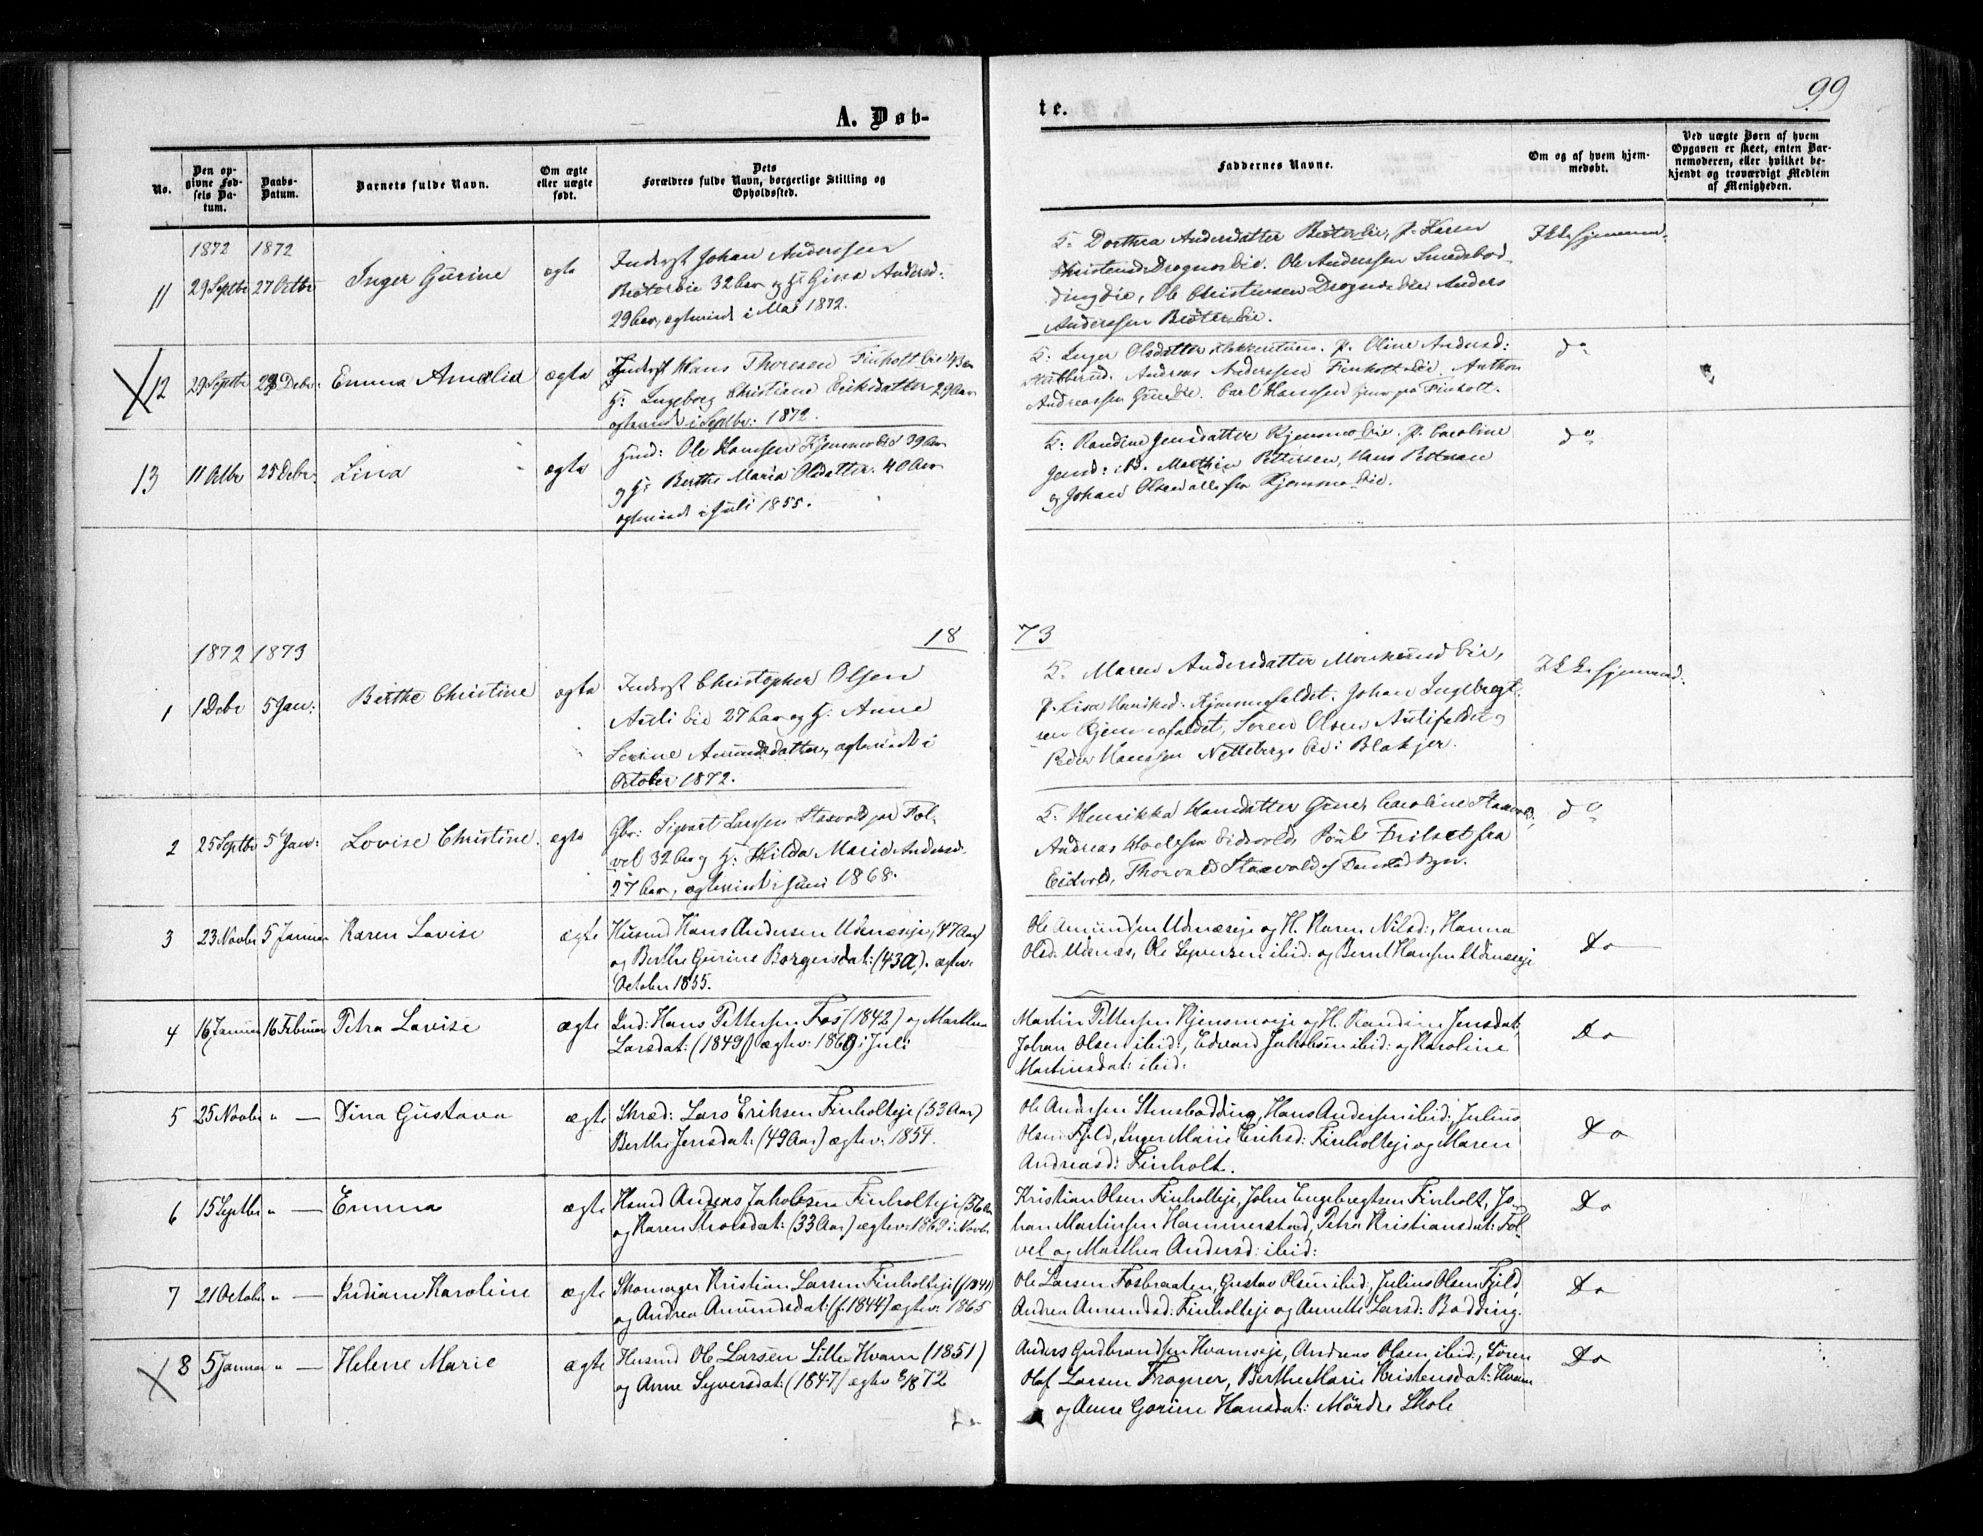 99
A. Døb-
te.
No.
Den op-
givne Fød-
sels Da-
tum.
Daabs-
Datum.
Barnets fulde Navn.
Om ægte
eller uægte
født.
Dets
Forældres fulde Navn, borgerlige Stilling og
Opholdssted.
Faddernes Navne.
Om og af hvem hjem-
medøbt.
Ved uægte Børn af hvem
Opgaven er skeet, enten Bar-
nemoderen, eller hvilket be-
kjendt og troværdigt Medlem
af Menigheden.
1872 1872
11 29 Septbr 27 Octbr Inger Gurine ægte
Inderst Johan Anderssen
32 Aar og H: Gina Andersd:
29 Aar, ægteviede i Mai 1872.
Dorthea Andersdatter
Ole Anderssen
Ole Christensen Anders
Anderssen
12 29 Septbr Debr: Emma Amalia ægte
Inderst Hans Thoresen Finholt Eie 43 Aar
H: Ingeborg Christiane Eriksdatter 29 Aar
ægteviede i Septbr: 1872.
Inger Olsdatter P. Oline Andersd:
Andreas Anderssen Finholt Eie. Anthon
Andreassen Carl Hanssen Finholt.
do
13 11 Octbr 25 Debr. Lina ægte
Ole Hanssen 39 Aar
og H: Berthe Maria Olsdatter 40 Aar
ægteviede i Juli 1855.
Randine Jensdatter P. Caroline
Martin Petersen, Hans
og Johan Olsen alle fra
do
1873
1872 1873
1 1 Debr 5 Jan: Berthe Christine ægte
Inderst Christopher Olsen
Auli Eie 27 Aar og H: Anne
Serine Amundsdatter, ægteviede i
October 1872.
Maren Andersdatter
Johan Ingebregt-
sen Søren Olsen Aulifaldet og
Peder Hanssen Netteberg Eie i Blakjer.
2 25 Septbr 5 Jan: Lovise Christine. ægte
Gbr: Sigvart Larssen Staxvold paa Føl-
vel 32 Aar og H: Hilda Marie Andersd:
27 Aar, ægteviede i Juni 1868.
Henrikka Hansdatter Caroline Staxvold,
Andreas fra Eidsvold, fra
Eidsvold, Thorvald Staxvold
do
3 23 Novbr 5 Januar Karen Lovise ægte
Husmd Hans Andersen Udnæseje, (47 Aar)
og Berthe Gurine Borgersdat: (43 A). ægtev.
October 1855.
Ole Amundsen Udnæseje og H. Karen Nilsd:, Hanna
Olsd. Udnæs, Ole Syversen ibid: og Bernt Hansen Udnæseje
Do
4 16 Januar 16 Februar Petra Lovise ægte
Ind: Hans Pettersen Fos (1842) og Marthea
Larsdat: (1849) ægtev: 1869 i Juli
Martin Pettersen og H. Randine Jensdat,
Johan Olsen ibid:, Edvard Jakobsen ibid: og Karoline
Martinsdat: ibid:
Do
5 25 Novbr " — Dina Gustava ægte
Skræd: Lars Eriksen Finholteje (53 Aar)
Berthe Jensdat: (49 Aar) ægtev: 1854.
Ole Andersen Stensbødding, Hans Andersen ibid:, Julius
Olsen Fjeld, Inger Marie Eriksd: Finholteje og Maren
Andreasd: Finholt.
Do
6 15 Septbr " — Emma ægte
Husmd Anders Jakobsen Finholteje (56 Aar
og Karen (33 Aar) ægtev: 1869 i Novbr
Kristian Olsen Finholteje, John Engebregtsen Finholt, Jo-
han Martinsen Hammerstad, Petra Kristiansdat: Føl-
vel og Marthea Andersd: ibid:
Do
7 21 October " — Indiane Karoline ægte
Skomager Kristian Larsen Finholteje (f 1841)
og Andrea Amundsdat: (f. 1844) ægtev: 1865
Ole Larsen Fosbraaten, Gustav Olsen ibid:, Julius Olsen Fjeld,
Andrea Amundsd: Finholteje og Annette Larsd: Bødding.
Do
8 5 Januar " — Helene Marie ægte
Husmd Ole Larsen Lille Kvam (1851)
og Anne Syversdat: (1847) ægtev 72
Anders Gudbrandsen Kvamseje, Andreas Olsen ibid:, Søren
Olaf Larsen Frogner, Berthe Marie Kristensdat: Kvam
og Anne Gorine Hansdat: Mördre Skole
Do